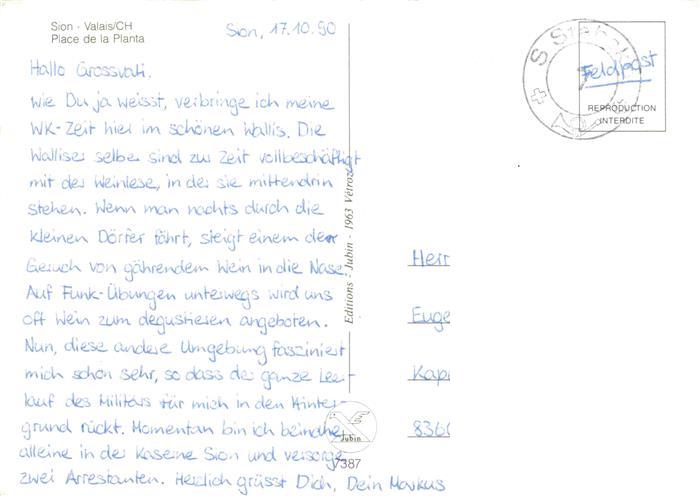 Sion - Valais/CH
Place de la Planta
Sion, 17.10.90
Hallo Grossvati.
Wie Du ja weisst, verbringe ich meine
WK-Zeit hier im schönen Wallis. Die
Walliser selber sind zur Zeit vollbeschäftigt
mit der Weinlese, in der sie mittendrin
stehen. Wenn man nachts durch die
kleinen Dörfer fährt, steigt einem der
Geruch von gährendem Wein in die Nase.
Auf Funk-Übungen unterwegs wird uns
oft Wein zum degustieren angeboten.
Nun, diese andere Umgebung fasziniert
mich schon sehr, so dass der ganze Leer-
lauf des Militärs für mich in den Hinter-
grund rückt. Momentan bin ich beinahe
alleine in der Kaserne Sion und versorge
zwei Arrestanten. Herzlich grüsst Dich, Dein Markus
Editions - Jubin - 1963 Vétroz
Jubin
7387
Feldpost
REPRODUCTION
INTERDITE
Herr
Euge
Kap
836